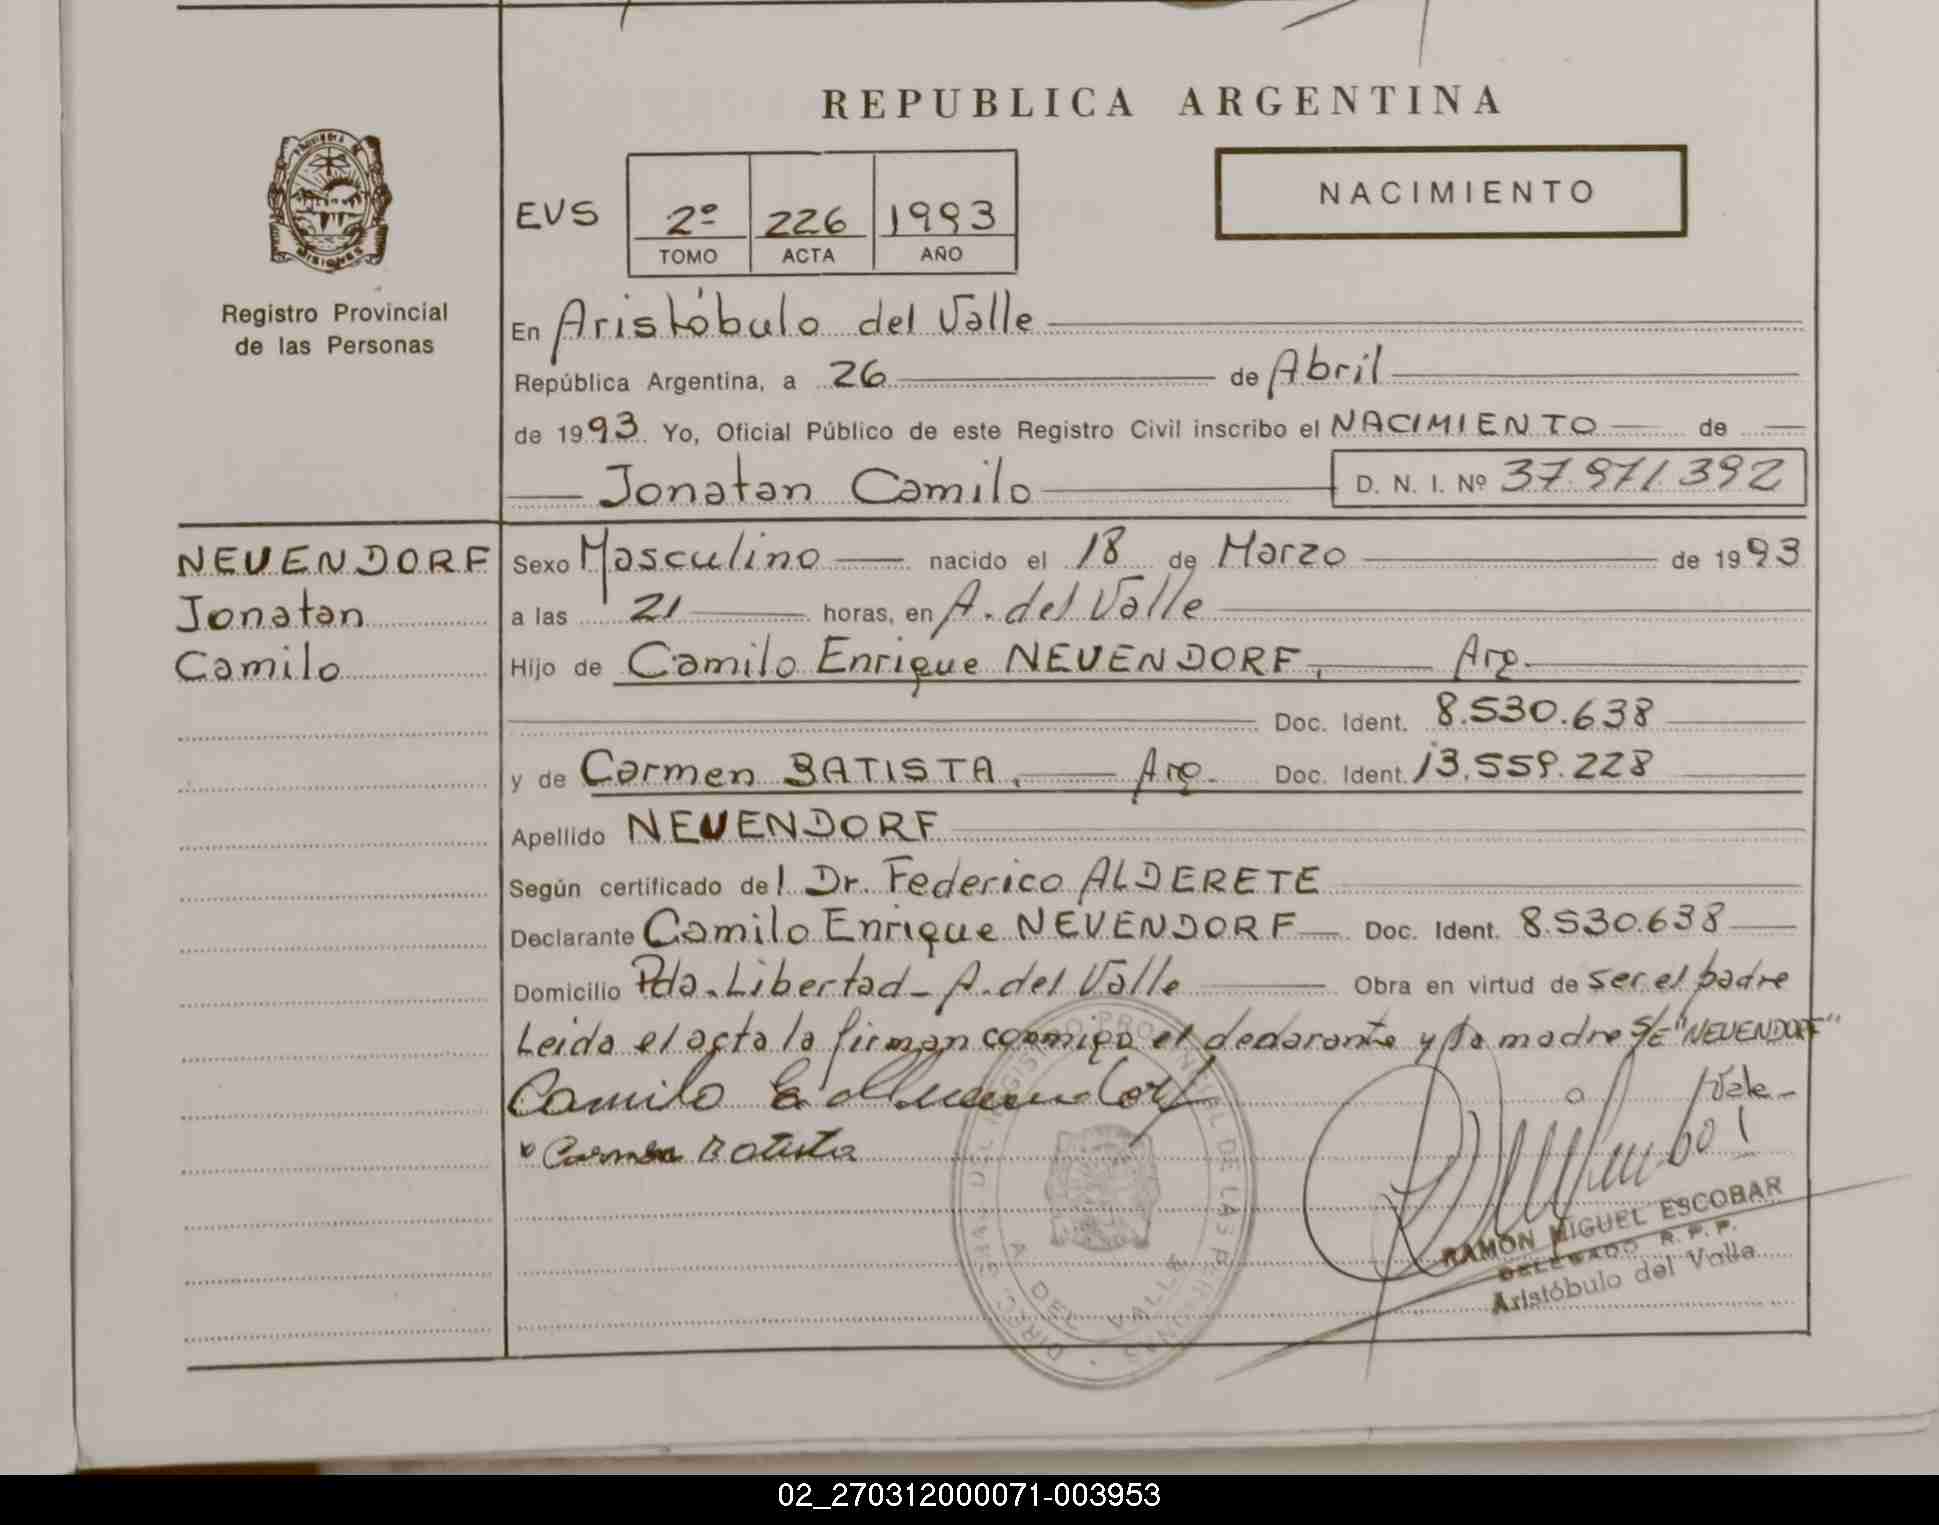 REPUBLICA ARGENTINA
NACIMIENTO
EVS 2º 226 1993
TOMO ACTA AÑO
MISIONES
Registro Provincial
de las Personas
En Aristóbulo del Valle
República Argentina, a 26 de Abril
de 1993 Yo, Oficial Público de este Registro Civil inscribo el NACIMIENTO de
Jonatan Camilo D. N. I. Nº 37.971.392
NEUENDORF
Jonatan
Camilo
Sexo Masculino nacido el 18 de Marzo de 1993
a las 21 horas, en A. del Valle
Hijo de Camilo Enrique NEUENDORF, Arg.
Doc. Ident. 8.530.638
y de Carmen BATISTA, Arg. Doc. Ident. 13.559.228
Apellido NEUENDORF
Según certificado del Dr. Federico ALDERETE
Declarante Camilo Enrique NEUENDORF Doc. Ident. 8.530.638
Domicilio Pda. Libertad - A. del Valle Obra en virtud de ser el padre
Leida el acta la firman conmigo el declarante y la madre S/E "NEUENDORF"
Vale-
Camilo E Neuendorf
Carmen Batista
RAMON MIGUEL ESCOBAR
DELEGADO R. P. P.
Aristóbulo del Valle
DIREC. GRAL. DEL REGISTRO PROVINCIAL DE LAS PERSONAS
A. DEL VALLE
02_270312000071-003953